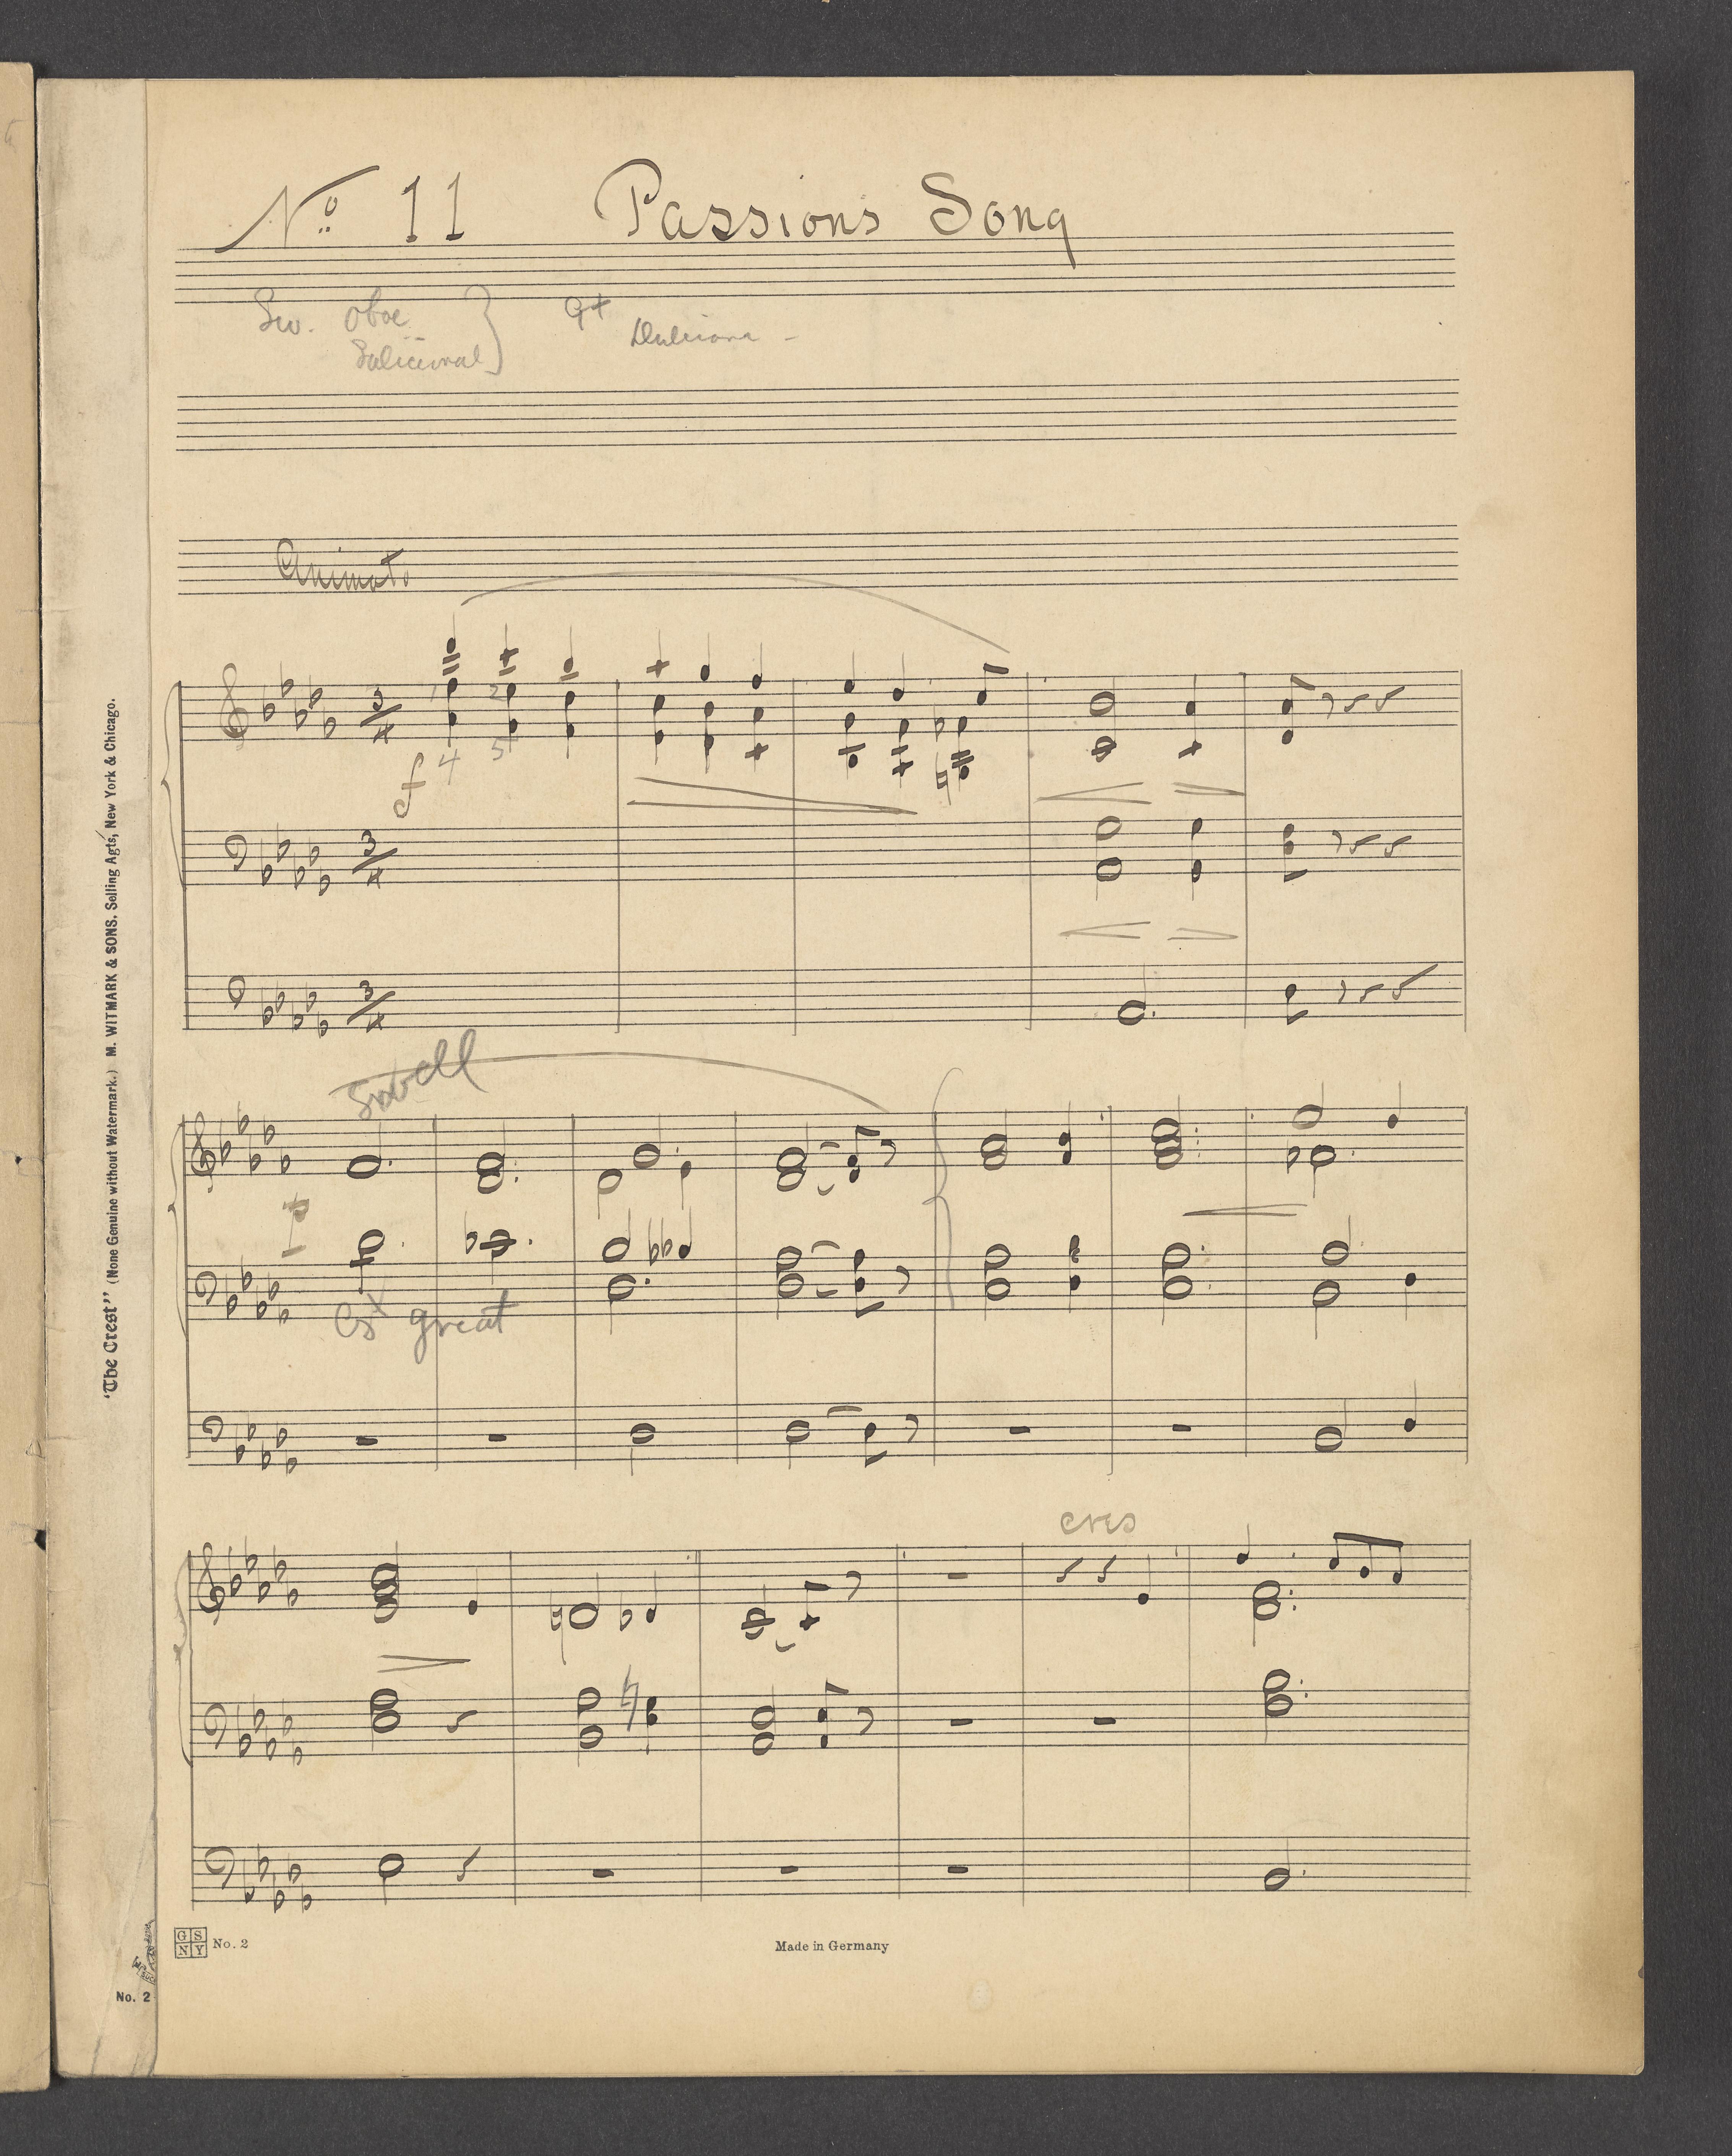 No 11 Passions Song
Sw. Oboe
Salicional
Gt Dulciana -
Animato
3/4
1 2
f 4 5
3/4
3/4
Swell
p
great
cres
GS
NY
No. 2
Made in Germany
No. 2
"The Crest" (None Genuine without Watermark.) M. WITMARK & SONS. Selling Agts, New York & Chicago.